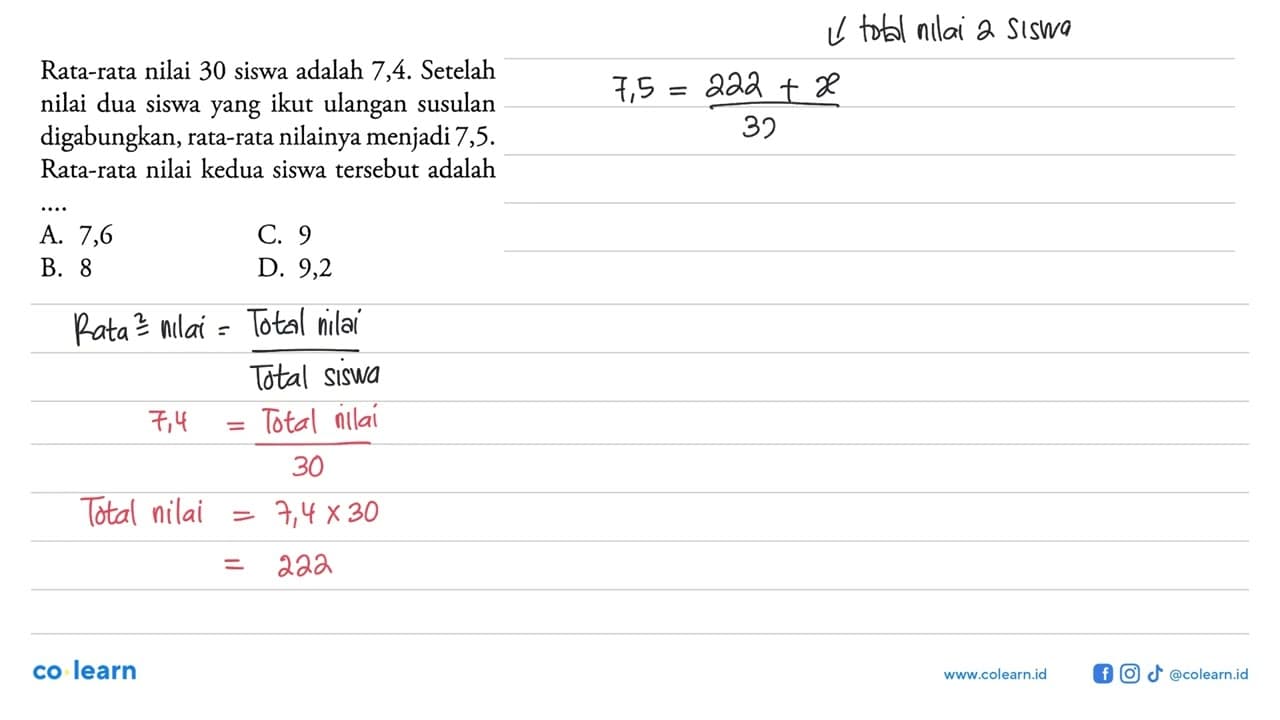 Rata-rata nilai 30 siswa adalah 7,4. Setelah
nilai dua siswa yang ikut ulangan susulan
digabungkan, rata-rata nilainya menjadi 7,5.
Rata-rata nilai kedua siswa tersebut adalah
....
A. 7,6 C. 9
B. 8 D. 9,2
Rata² nilai = Total nilai
Total siswa
7,4 = Total nilai
30
Total nilai = 7,4 x 30
= 222
↙ total nilai 2 siswa
7,5 = 222 + x
co learn
www.colearn.id @colearn.id